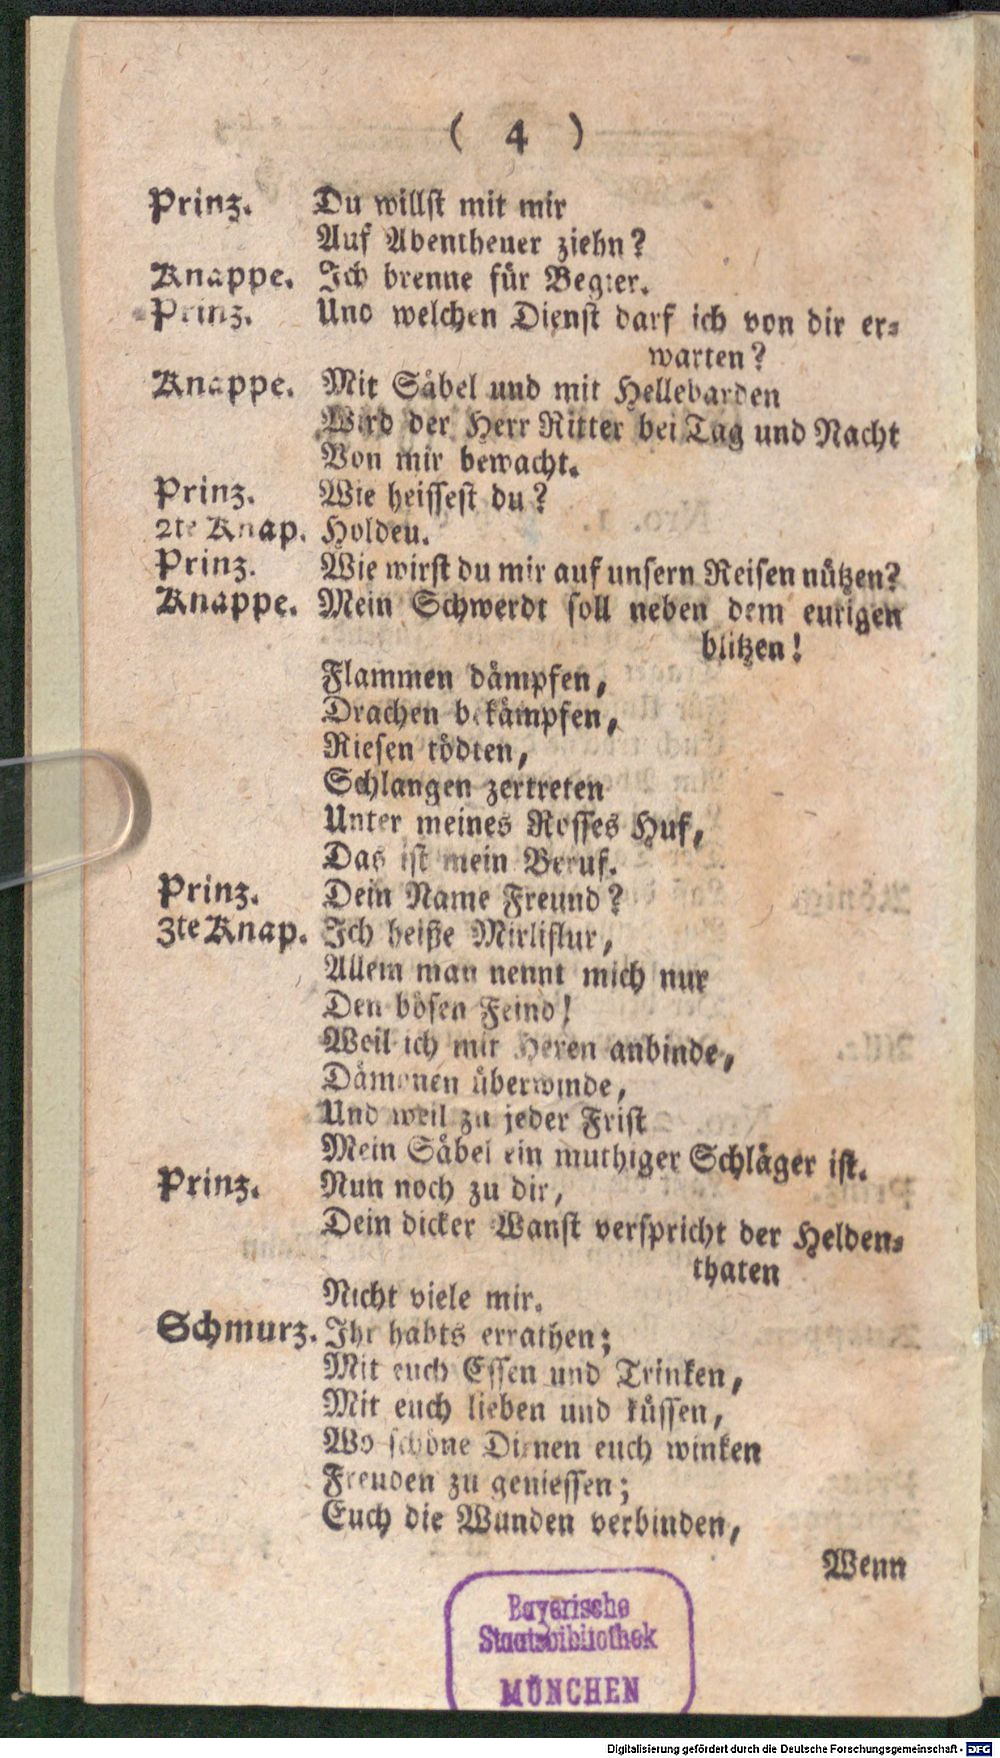 ( 4 )
Prinz. Du willst mit mir
Auf Abentheuer ziehn?
Knappe. Ich brenne für Begier.
Prinz. Und welchen Dienst darf ich von dir er-
warten?
Knappe. Mit Säbel und mit Hellebarden
Wird der Herr Ritter bei Tag und Nacht
Von mir bewacht.
Prinz. Wie heissest du?
2te Knap. Holdeu.
Prinz. Wie wirst du mir auf unsern Reisen nützen?
Knappe. Mein Schwerdt soll neben dem eurigen
blitzen!
Flammen dämpfen,
Drachen bekämpfen,
Riesen tödten,
Schlangen zertreten
Unter meines Rosses Huf,
Das ist mein Beruf.
Prinz. Dein Name Freund?
3te Knap. Ich heiße Mirliflur,
Allein man nennt mich nur
Den bösen Feind!
Weil ich mit Hexen anbinde,
Dämonen überwinde,
Und weil zu jeder Frist
Mein Säbel ein muthiger Schläger ist.
Prinz. Nun noch zu dir,
Dein dicker Wanst verspricht der Helden-
thaten
Nicht viele mir.
Schmurz. Ihr habts errathen;
Mit euch Essen und Trinken,
Mit euch lieben und küssen,
Wo schöne Dirnen euch winken
Freuden zu geniessen;
Euch die Wunden verbinden,
Wenn
Bayerische
Staatsbibliothek
MÜNCHEN
Digitalisierung gefördert durch die Deutsche Forschungsgemeinschaft - DFG